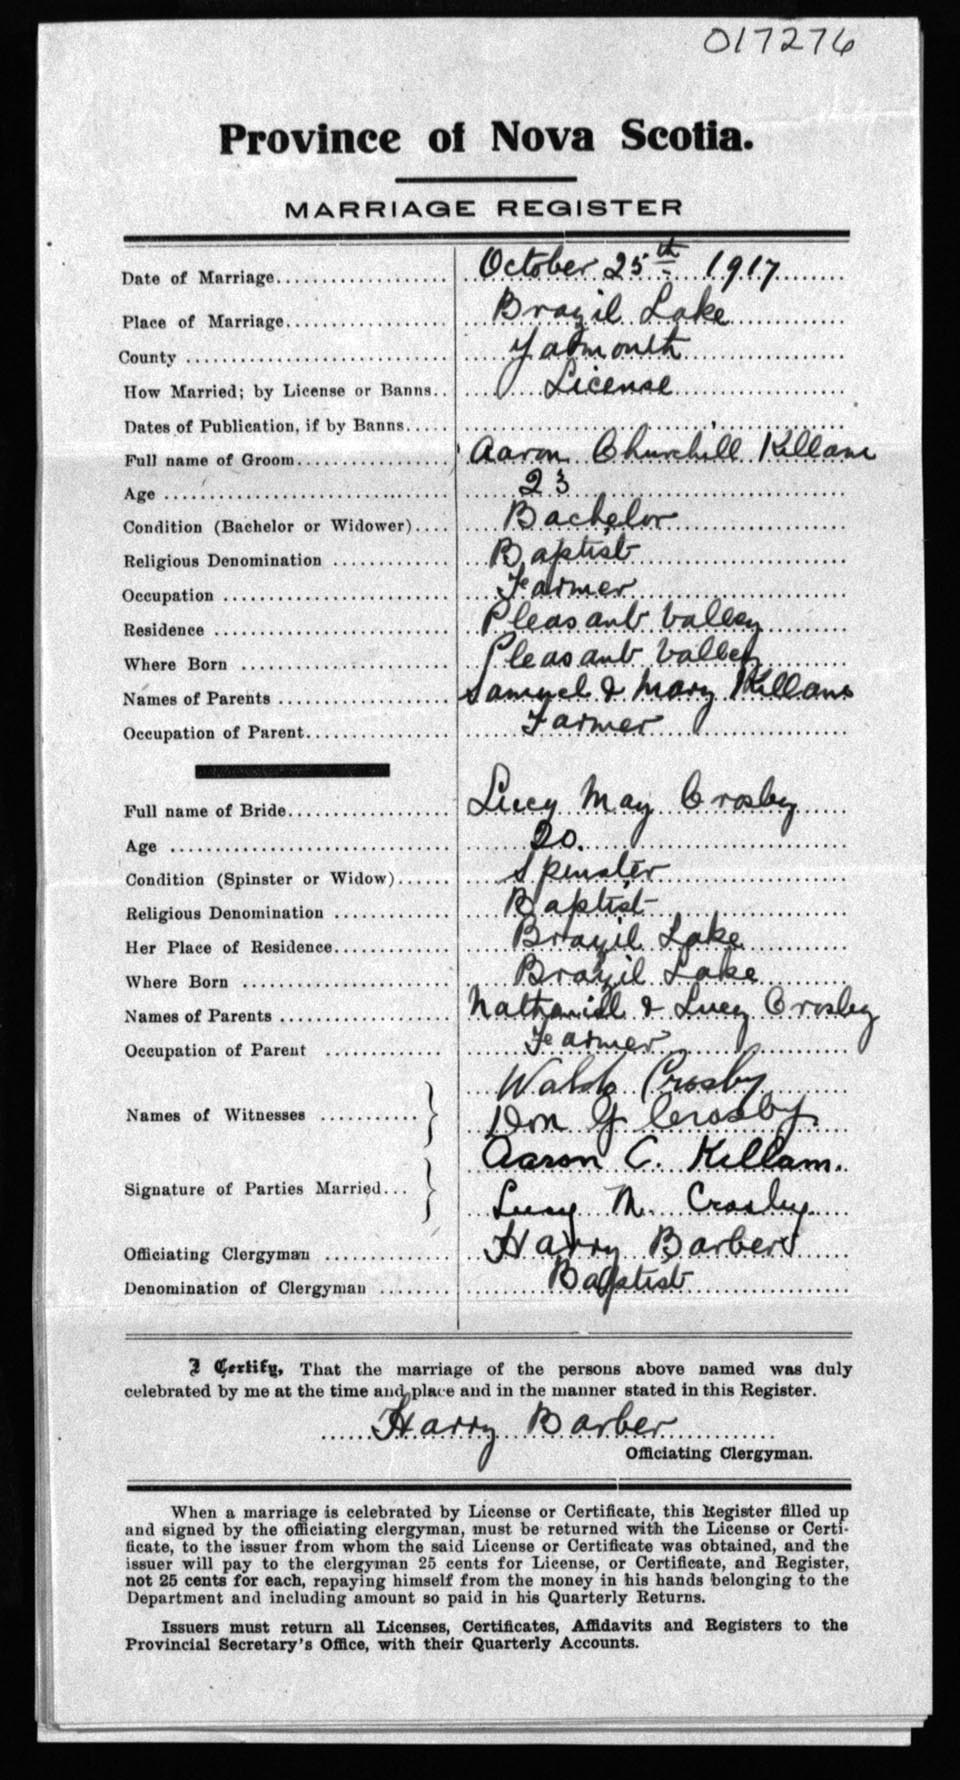 017276
Province of Nova Scotia.
MARRIAGE REGISTER
Date of Marriage October 25th 1917
Place of Marriage Brazil Lake
County Yarmouth
How Married; by License or Banns License
Dates of Publication, if by Banns
Full name of Groom Aaron Churchill Killam
Age 23
Condition (Bachelor or Widower) Bachelor
Religious Denomination Baptist
Occupation Farmer
Residence Pleasant Valley
Where Born Pleasant Valley
Names of Parents Samuel & Mary Killam
Occupation of Parent Farmer
Full name of Bride Lucy May Crosby
Age 20.
Condition (Spinster or Widow) Spinster
Religious Denomination Baptist
Her Place of Residence Brazil Lake
Where Born Brazil Lake
Names of Parents Nathaniel & Lucy Crosby
Occupation of Parent Farmer
Crosby
Names of Witnesses
Don G Crosby
Aaron C. Killam.
Signature of Parties Married
Lucy M. Crosby
Officiating Clergyman Harry Barber
Denomination of Clergyman Baptist
I Certify, That the marriage of the persons above named was duly
celebrated by me at the time and place and in the manner stated in this Register.
Harry Barber
Officiating Clergyman.
When a marriage is celebrated by License or Certificate, this Register filled up
and signed by the officiating clergyman, must be returned with the License or Certi-
ficate, to the issuer from whom the said License or Certificate was obtained, and the
issuer will pay to the clergyman 25 cents for License, or Certificate, and Register,
not 25 cents for each, repaying himself from the money in his hands belonging to the
Department and including amount so paid in his Quarterly Returns.
Issuers must return all Licenses, Certificates, Affidavits and Registers to the
Provincial Secretary's Office, with their Quarterly Accounts.